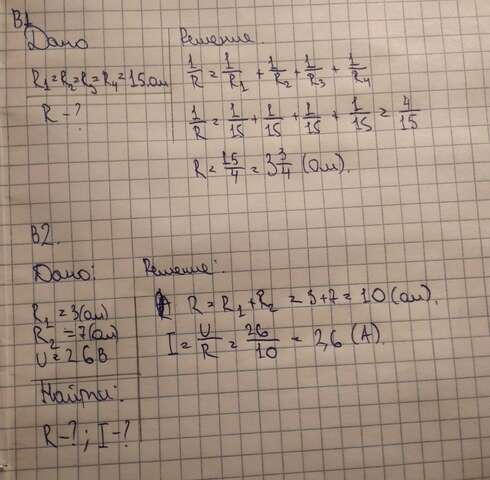 B1
Дано
R₁=R₂=R₃=R₄=15Ом
R-?
Решение.
1/R = 1/R₁ + 1/R₂ + 1/R₃ + 1/R₄
1/R = 1/15 + 1/15 + 1/15 + 1/15 = 4/15
R = 15/4 = 3 3/4 (Ом).
B2.
Дано:
R₁ = 3(Ом)
R₂ = 7(Ом)
U = 26В
Найти:
R-?; I-?
Решение:
R = R₁ + R₂ = 3+7 = 10 (Ом).
I = U/R = 26/10 = 2,6 (А).